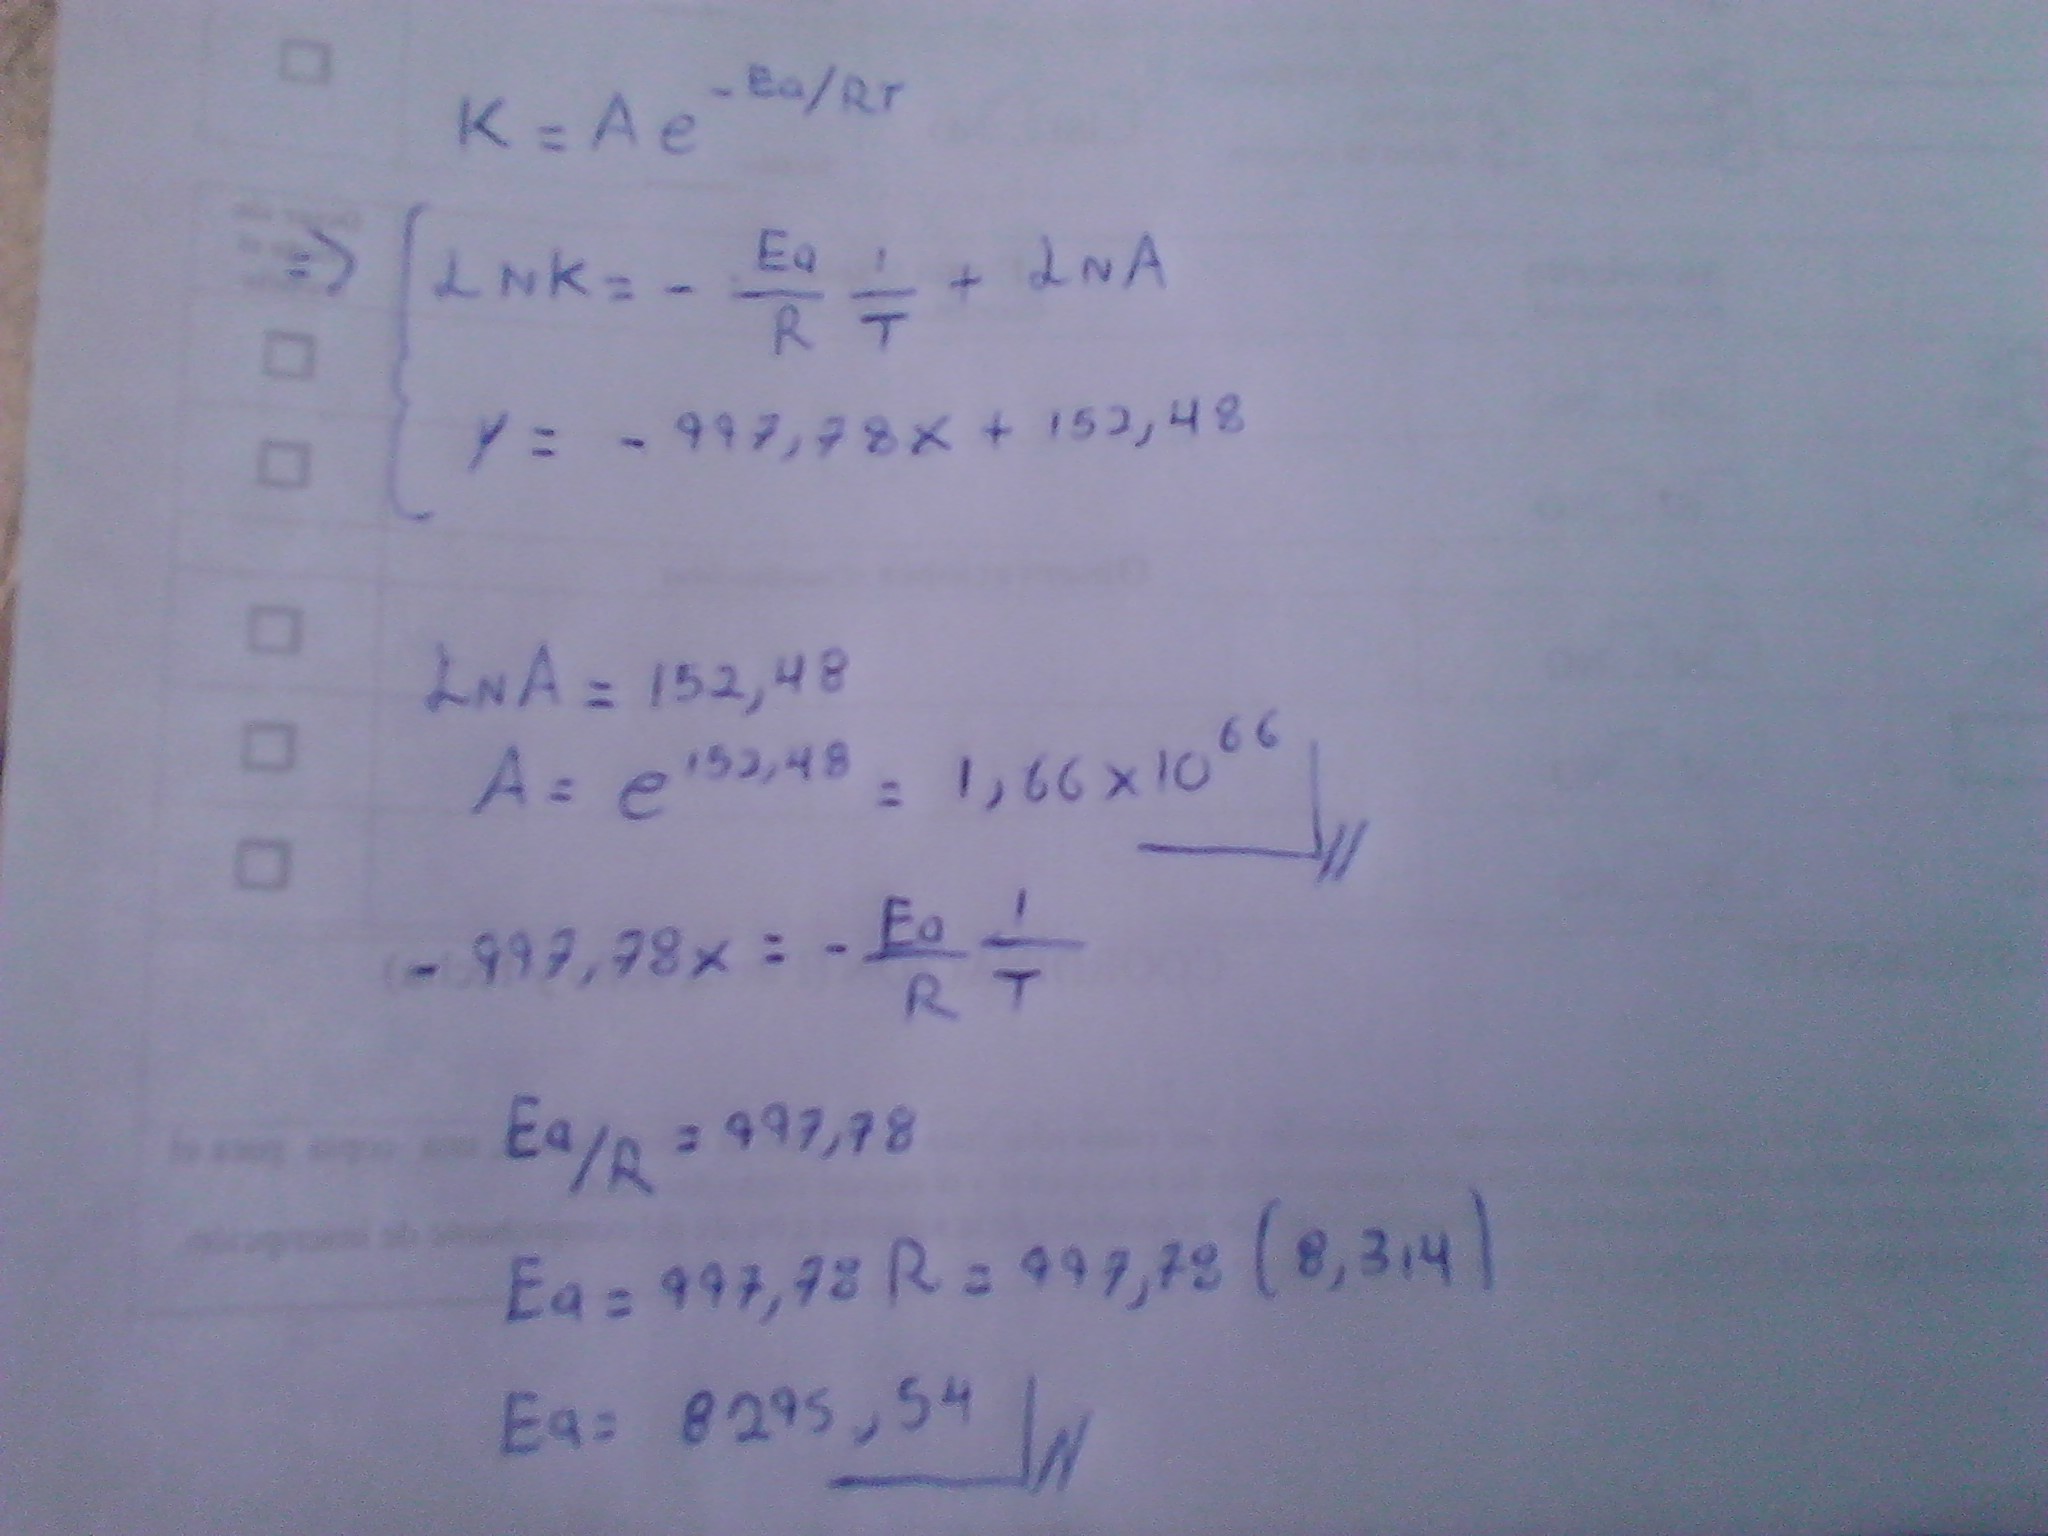 K = A e^-Ea/RT
=> { LNK = - Ea/R 1/T + LNA
Y = - 997,78x + 152,48
LNA = 152,48
A = e^152,48 = 1,66 x 10^66
- 997,78x = - Ea/R 1/T
Ea/R = 997,78
Ea = 997,78 R = 997,78 (8,314)
Ea = 8295,54